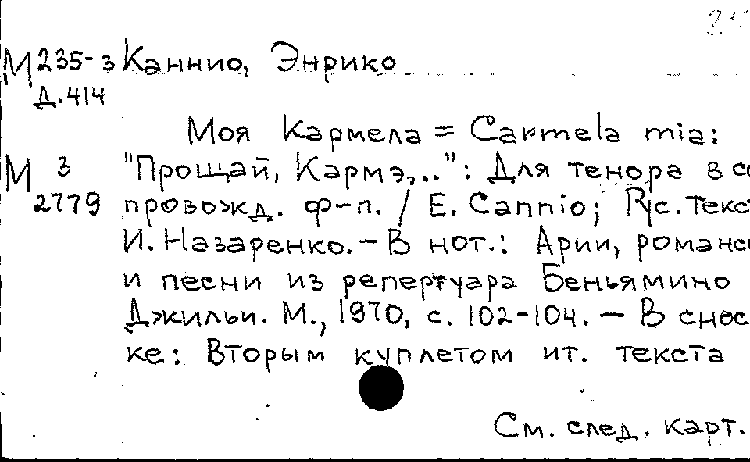 М 235-3 Каннио, Энрико
Д.414
Моя Кармела = Carmela mia:
М 3 "Прощай, Кармэ,..": Для тенора в со
2779 провожд. ф-п. / E. Cannio; Рус. текст
И. Назаренко. - В нот.: Арии, романс
и песни из репертуара Беньямино
Джильи. М., 1970, с. 102-104. — В снос
ке: Вторым куплетом ит. текста
См. след. карт.